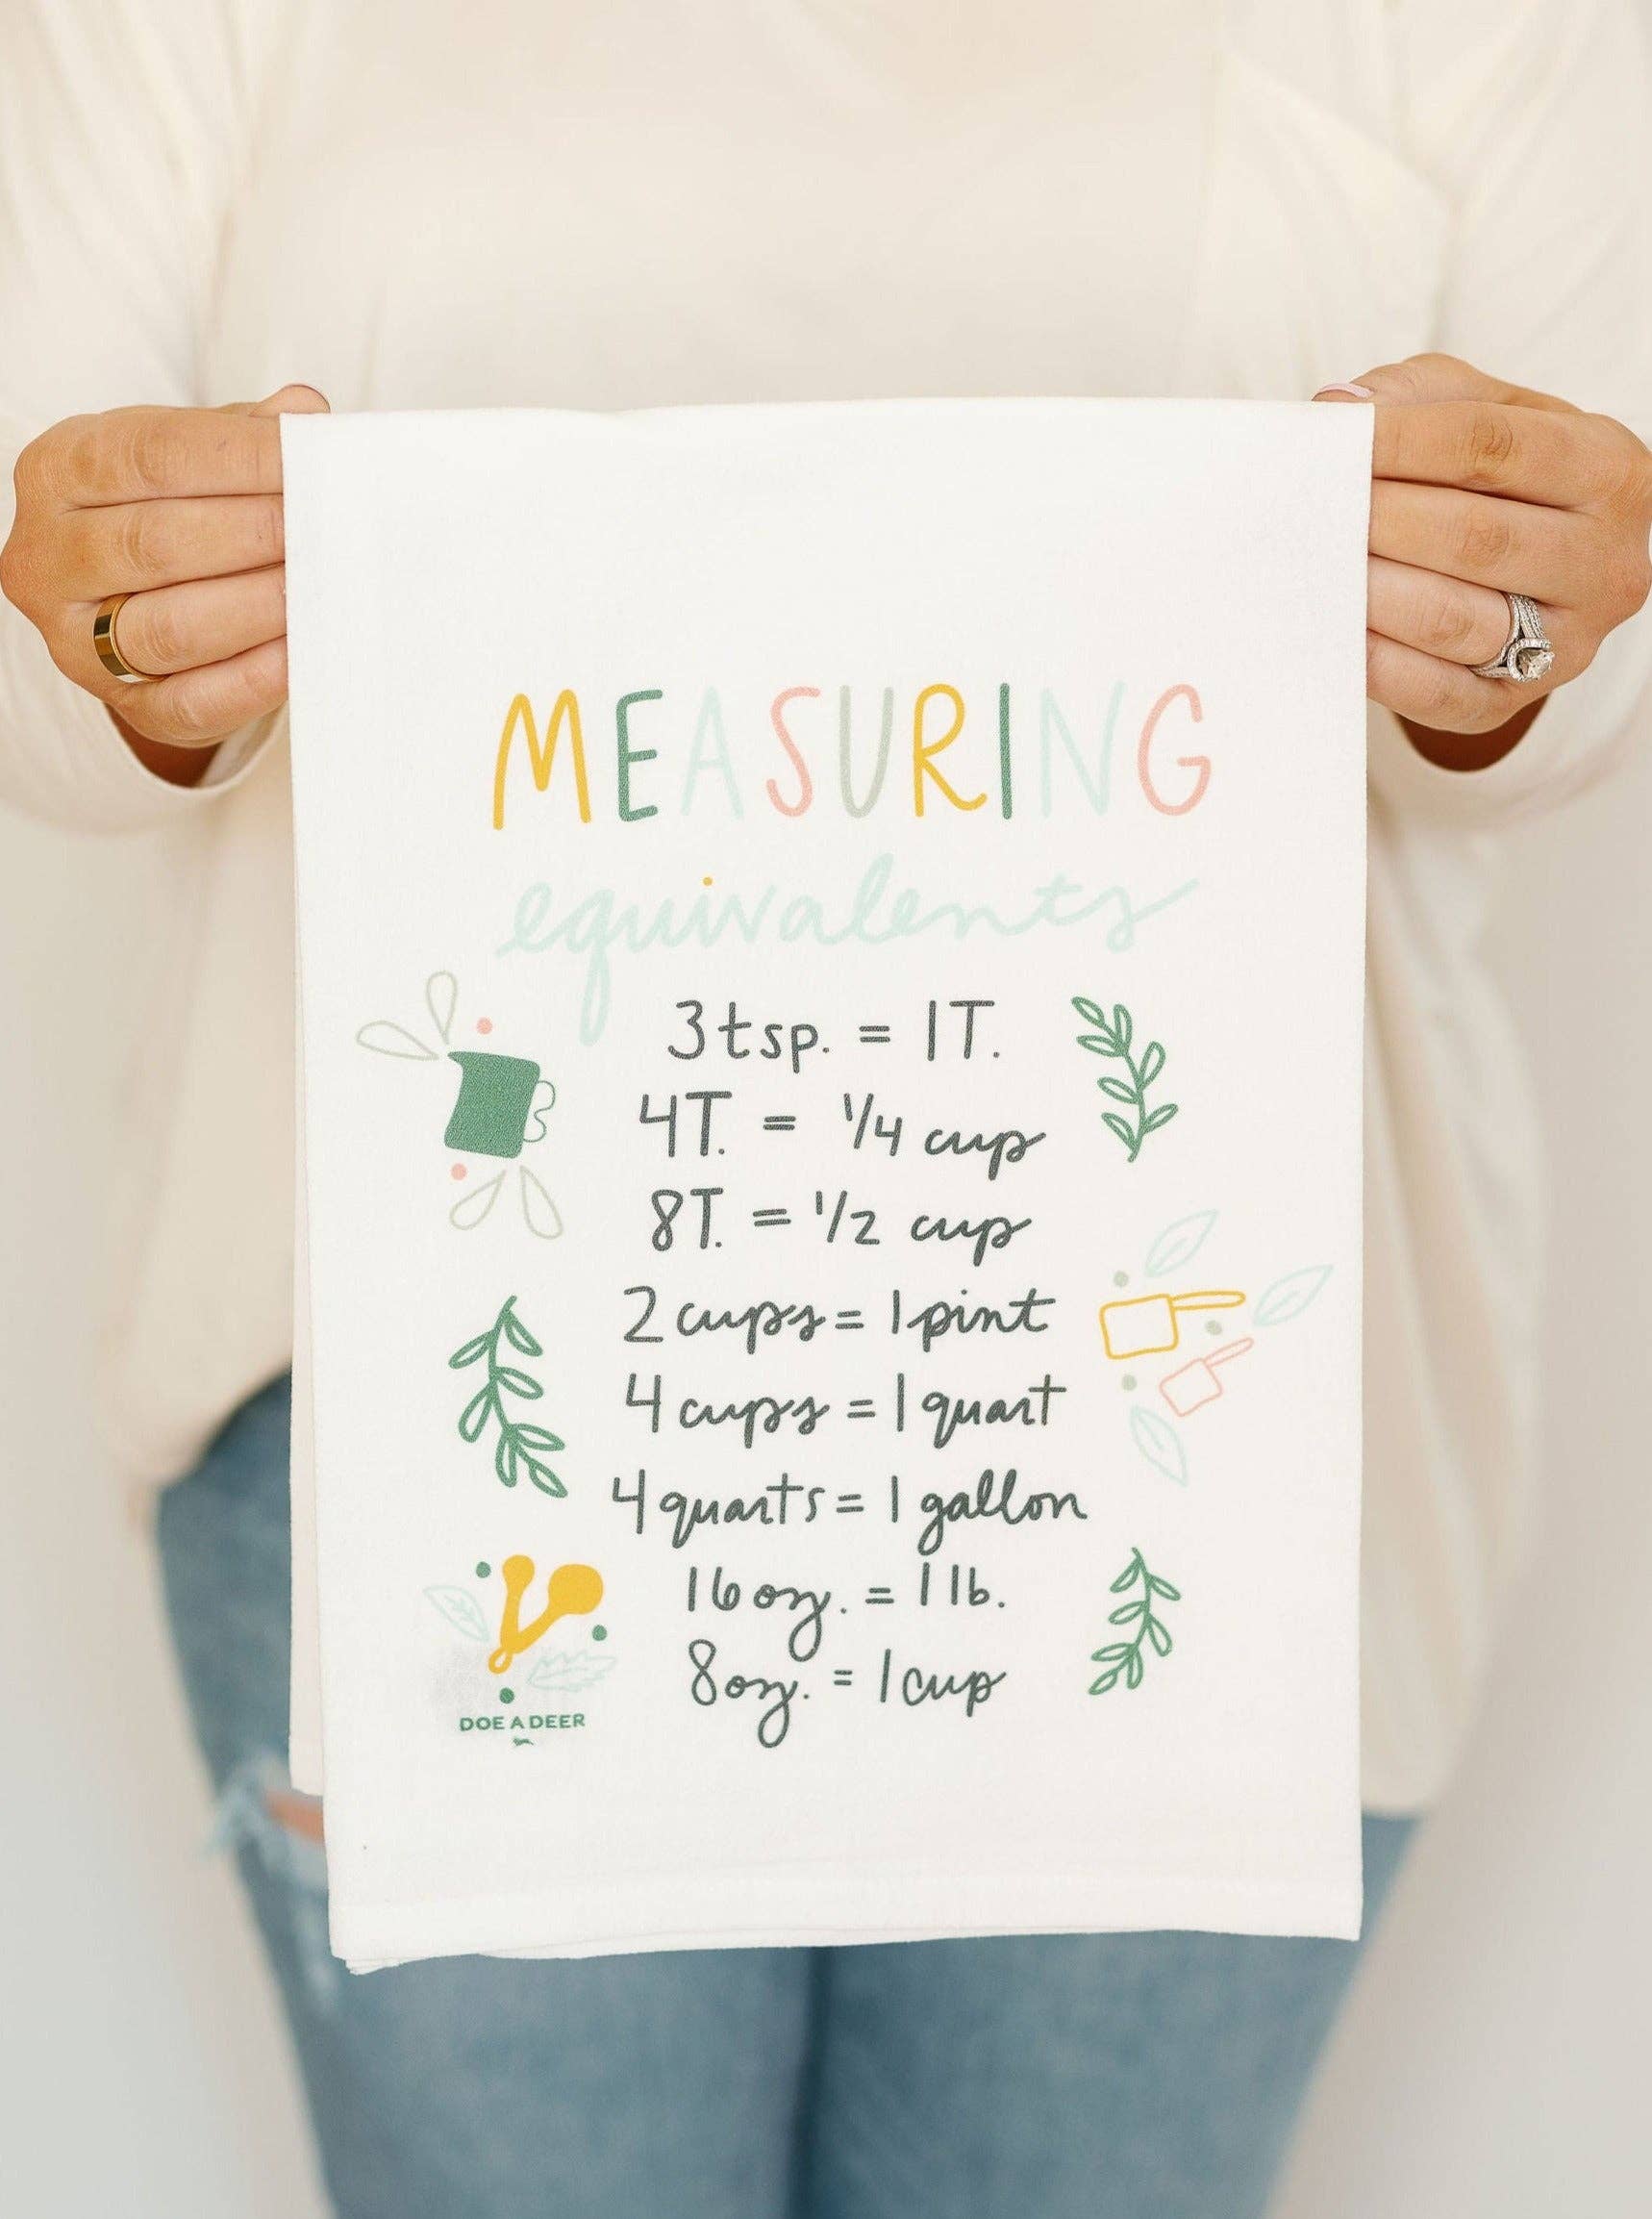 MEASURING
equivalents
3tsp. = 1T.
4T. = 1/4 cup
8T. = 1/2 cup
2 cups = 1 pint
4 cups = 1 quart
4 quarts = 1 gallon
16 oz. = 1 lb.
8 oz. = 1 cup
DOE A DEER